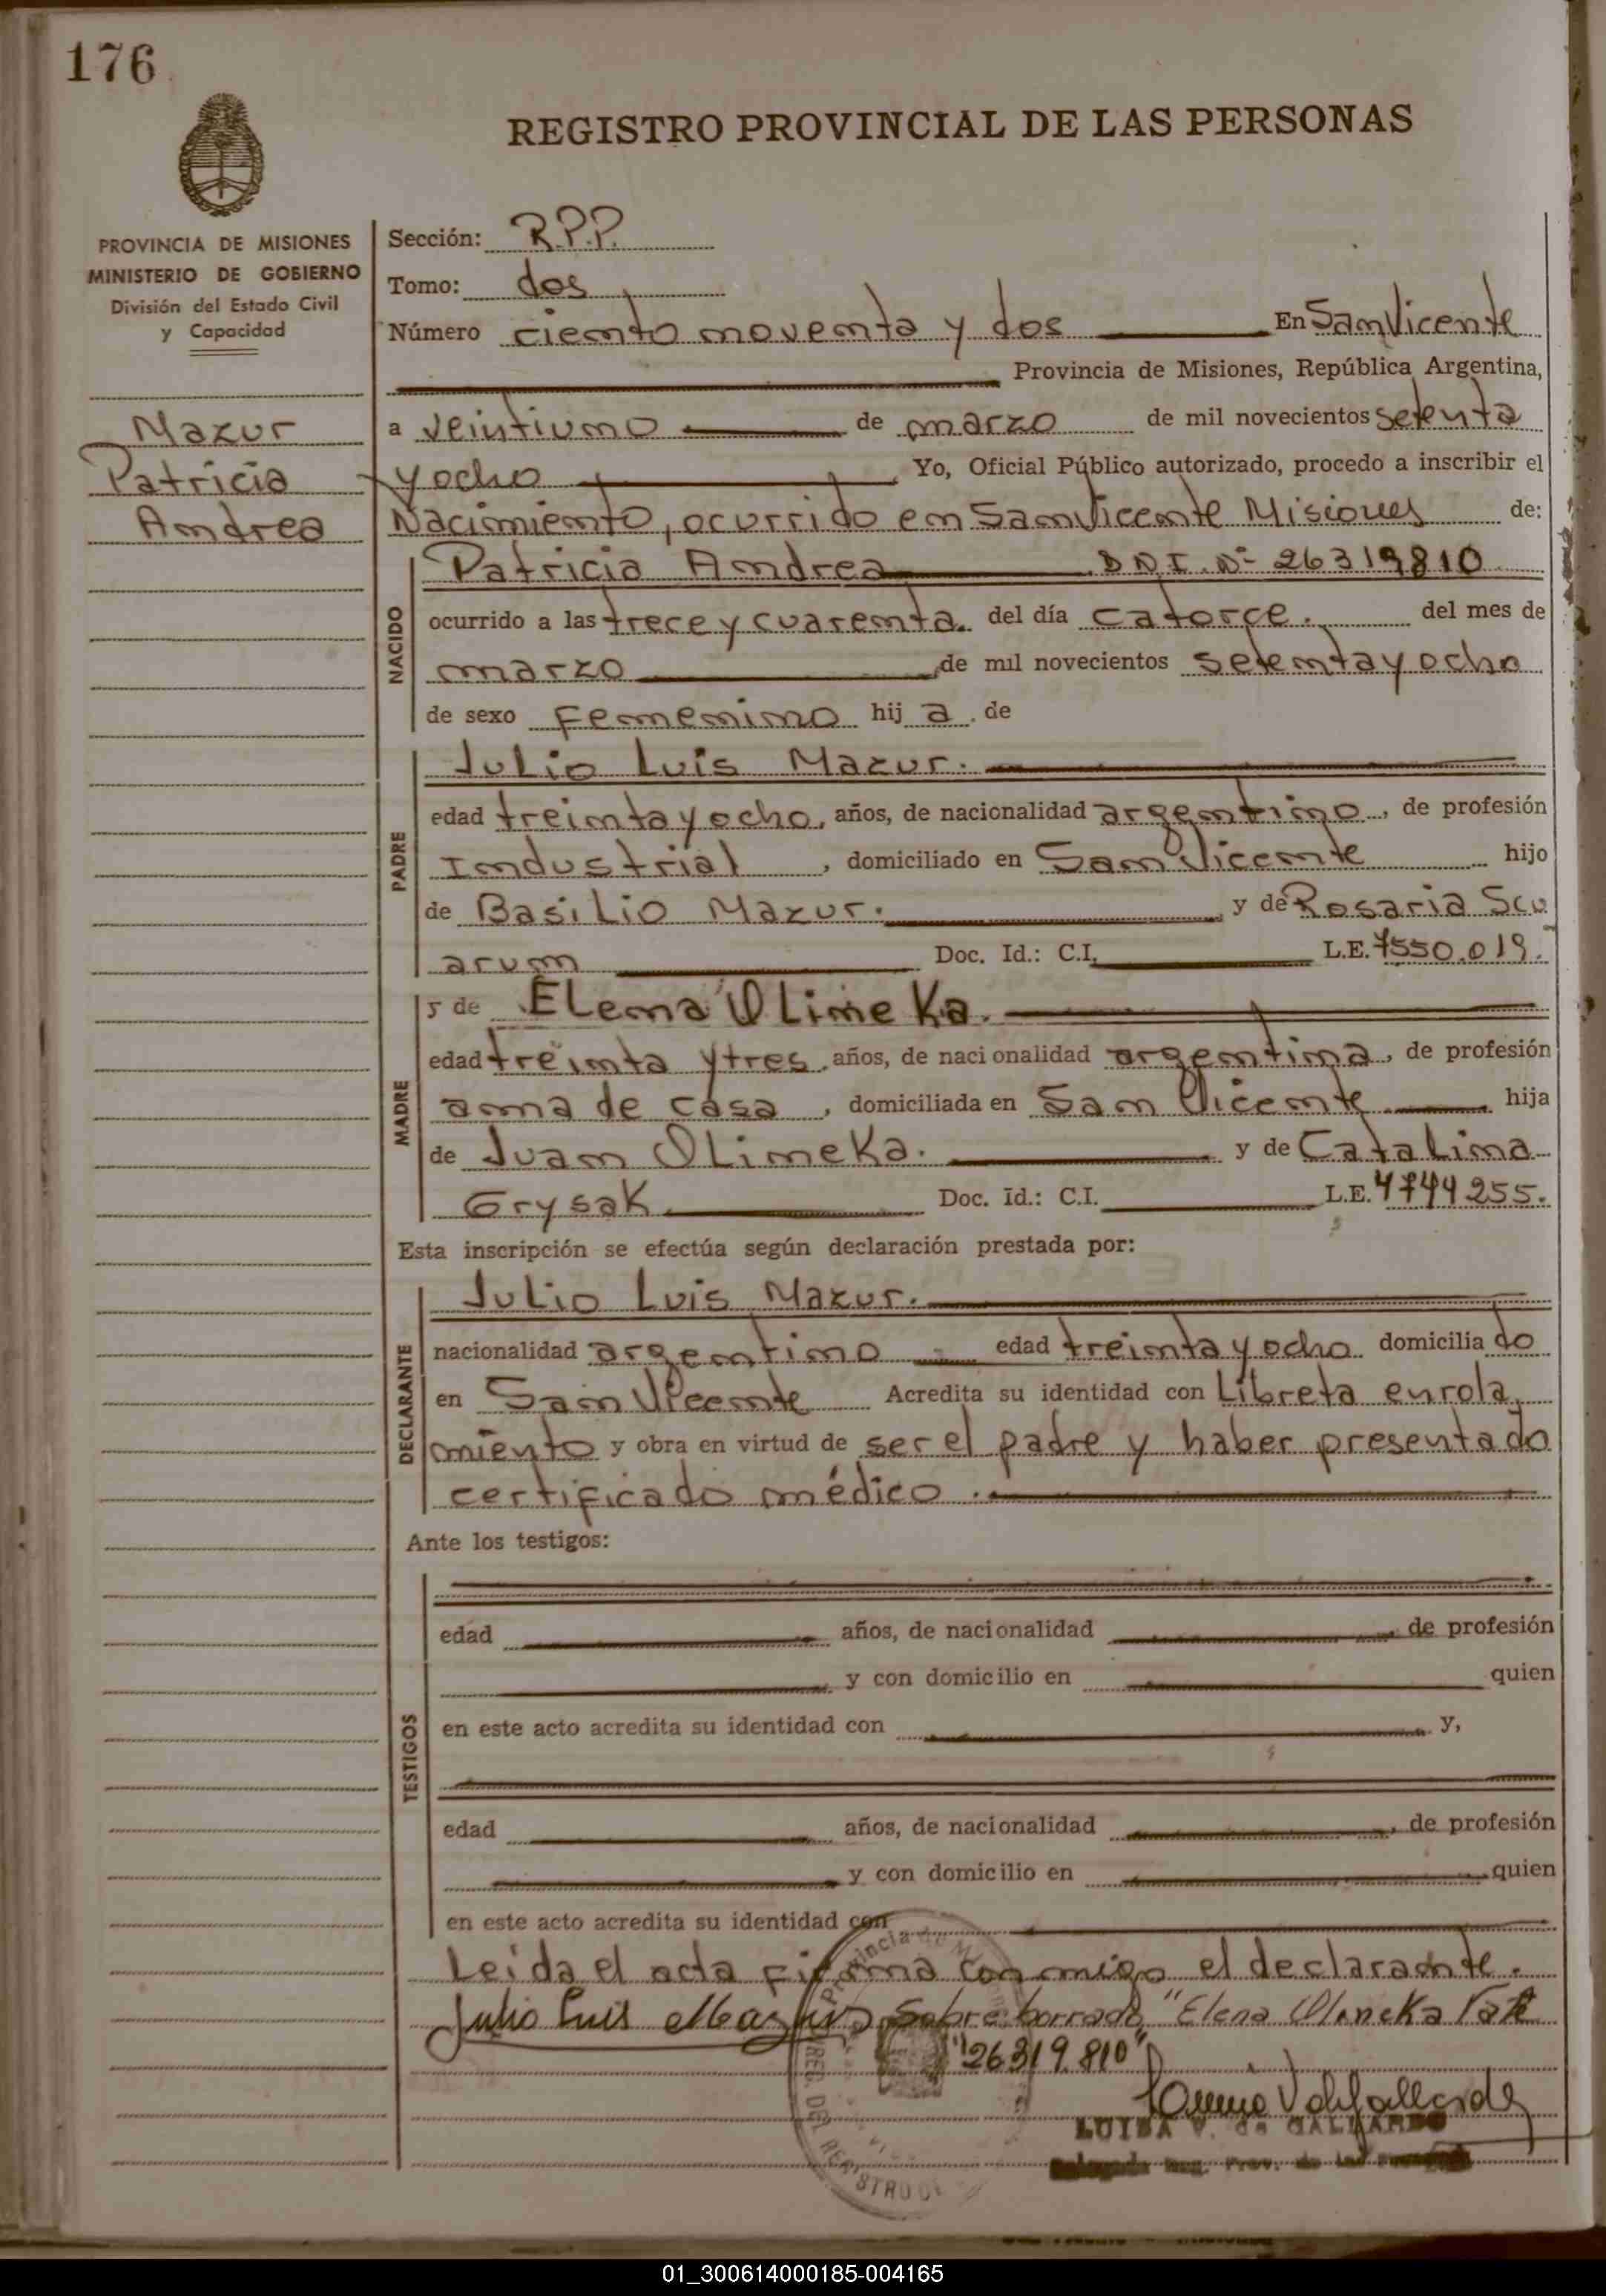 176
REGISTRO PROVINCIAL DE LAS PERSONAS
PROVINCIA DE MISIONES
MINISTERIO DE GOBIERNO
División del Estado Civil
y Capacidad
Mazur
Patricia
Andrea
Sección: R.P.P.
Tomo: dos
Número ciento noventa y dos En San Vicente
Provincia de Misiones, República Argentina,
a veintiuno de marzo de mil novecientos setenta
y ocho Yo, Oficial Público autorizado, procedo a inscribir el
Nacimiento, ocurrido en San Vicente Misiones de:
NACIDO
Patricia Andrea D.N.I. Nº 26319810
ocurrido a las trece y cuarenta. del día catorce. del mes de
marzo de mil novecientos setenta y ocho
de sexo femenino hij a. de
PADRE
Julio Luis Mazur.
edad treinta y ocho, años, de nacionalidad argentino, de profesión
Industrial, domiciliado en San Vicente hijo
de Basilio Mazur. y de Rosaria Scu
arun Doc. Id.: C.I. L.E. 7550.019.
MADRE
y de Elena Olineka.
edad treinta y tres, años, de nacionalidad argentina, de profesión
ama de casa, domiciliada en San Vicente hija
de Juan Olineka. y de Catalina
Grysak Doc. Id.: C.I. L.E. 4744255.
Esta inscripción se efectúa según declaración prestada por:
DECLARANTE
Julio Luis Mazur.
nacionalidad argentino edad treinta y ocho domicilia do
en San Vicente Acredita su identidad con Libreta enrola
miento y obra en virtud de ser el padre y haber presentado
certificado médico.
Ante los testigos:
TESTIGOS
edad años, de nacionalidad de profesión
y con domicilio en quien
en este acto acredita su identidad con y,
edad años, de nacionalidad, de profesión
y con domicilio en quien
en este acto acredita su identidad con
Leida el acta firma conmigo el declarante.
Julio Luis Mazur Sobre borrado "Elena Olineka Vale
"26319.810"
LUISA V. de GALLARDO
Reg. Prov. de las
01_300614000185-004165